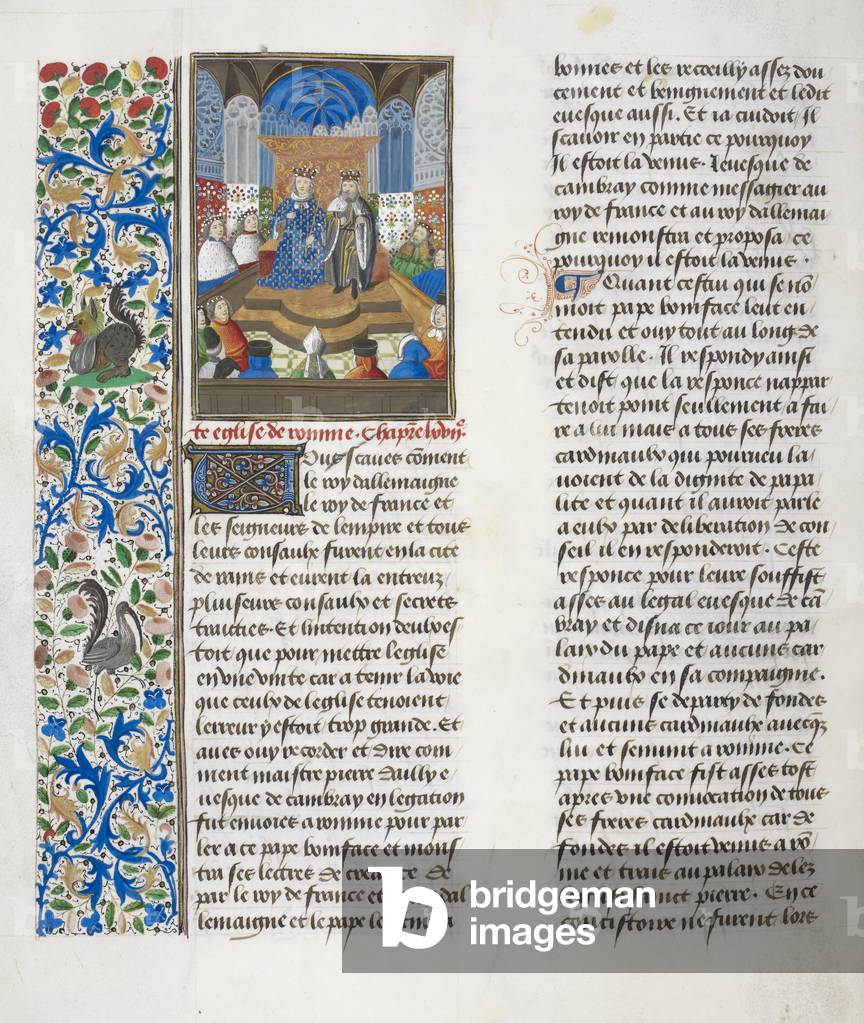 te eglise de romme. Chapre lxviijᵉ.
Vous scaves cōment
le roy dallemaigne
le roy de france et
les seigneurs de lempire et tous
leurs consaulx furent en la cite
de rains et eurent la entreulz
pluiseurs consaulx et secrets
traities. Et lintention deulx es
toit que pour mettre leglise
en vne vnite car a tenir la voie
que ceulx de leglise tenoient
lerreur y estoit trop grande. Et
aues ouy recorder et dire com
ment maistre pierre dailly e
uesque de cambray en legation
fut enuoies a romme pour par
ler a ce pape boniface et mons
tra ses lectres de de
par le roy de france et dal
lemaigne et le pape les
bonnes et les recoeilly assez dou
cement et benignement et ledit
euesque aussi. Et ia cuidoit Il
scauoir en partie ce pourquoy
Il estoit la venus. Leuesque de
cambray comme messagier au
roy de france et au roy dallemai
gne remonstra et proposa ce
pourquoy il estoit la venus.
Quant cestui qui se nō
moit pape boniface leut en
tendu et ouy tout au long de
sa parolle. Il respondy ainsi
et dist que la responce nappar
tenoit point seullement a fai
re a lui mais a tous ses freres
cardinaulx qui pourueu la
uoient de la dignite de papa
lite et quant il auroit parle
a eulx par deliberation de con
seil il en responderoit. Ceste
responce pour leure souffist
asses au legal euesque de cā
bray et disna ce iour au pa
laix du pape et aucuns car
dinaulx en sa compaignie.
Et puis se departy de fondes
et aucuns cardinaulx auecqz
lui et sen vint a romme. Ce
pape boniface fist asses tost
apres vne conuocation de tous
ses freres cardinaulx car de
fondes il estoit venus a rō
me et trais au palaix delez
saint pierre. En ce
consistoire ne furent lors
bridgeman
images
b